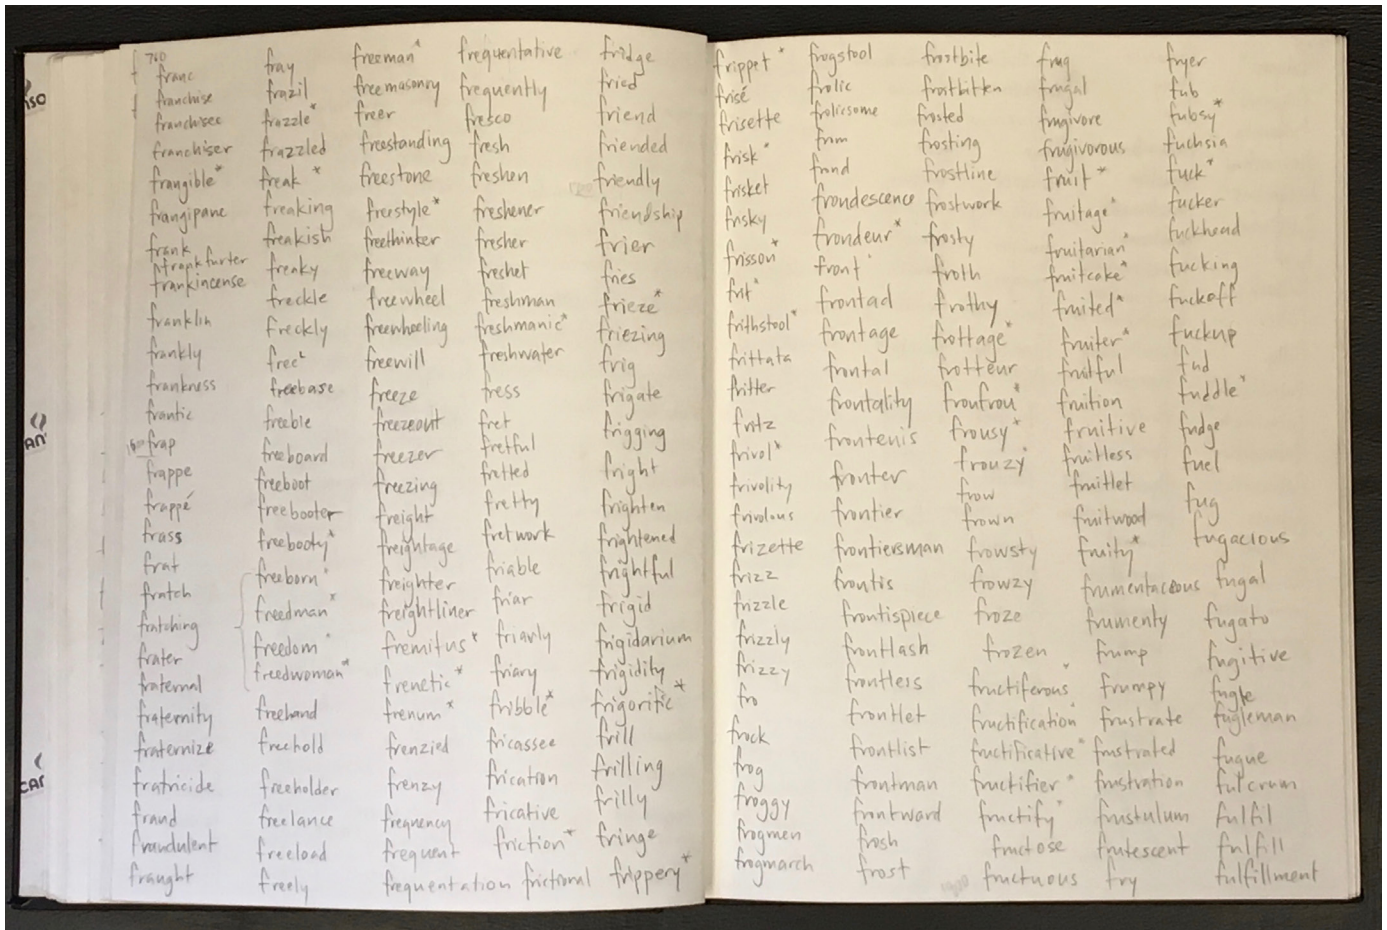 760
franc
franchise
franchisee
franchiser
frangible*
frangipane
frank
frankfurter
frankincense
franklin
frankly
frankness
frantic
frap
frappe
frappé
frass
frat
fratch
fratching
frater
fraternal
fraternity
fraternize
fratricide
fraud
fraudulent
fraught
fray
frazil
frazzle*
frazzled
freak *
freaking
freakish
freaky
freckle
freckly
free²
freebase
freebie
freeboard
freeboot
freebooter
freebooty*
freeborn*
freedman*
freedom*
freedwoman*
freehand
freehold
freeholder
freelance
freeload
freely
freeman*
freemasonry
freer
freestanding
freestone
freestyle*
freethinker
freeway
freewheel
freewheeling
freewill
freeze
freezeout
freezer
freezing
freight
freightage
freighter
freightliner
fremitus*
frenetic*
frenum*
frenzied
frenzy
frequency
frequent
frequentation
frequentative
frequently
fresco
fresh
freshen
freshener
fresher
freshet
freshman
freshmanic*
freshwater
fress
fret
fretful
fretted
fretty
fretwork
friable
friar
friarly
friary
fribble*
fricassee
frication
fricative
friction*
frictional
fridge
fried
friend
friended
friendly
friendship
frier
fries
frieze*
friezing
frig
frigate
frigging
fright
frighten
frightened
frightful
frigid
frigidarium
frigidity
frigorific*
frill
frilling
frilly
fringe
frippery*
frippet*
frisé
frisette
frisk*
frisket
frisky
frisson*
frit*
frithstool*
frittata
fritter
fritz
frivol*
frivolity
frivolous
frizette
frizz
frizzle
frizzly
frizzy
fro
frock
frog
froggy
frogmen
frogmarch
frogstool
frolic
frolicsome
from
frond
frondescence
frondeur*
front
frontad
frontage
frontal
frontality
frontenis
fronter
frontier
frontiersman
frontis
frontispiece
frontlash
frontless
frontlet
frontlist
frontman
frontward
frosh
frost
frostbite
frostbitten
frosted
frosting
frostline
frostwork
frosty
froth
frothy
frottage*
frotteur
froufrou*
frousy*
frouzy*
frow
frown
frowsty
frowzy
froze
frozen
fructiferous*
fructification*
fructificative*
fructifier*
fructify*
fructose
fructuous
frug
frugal
frugivore
frugivorous
fruit*
fruitage*
fruitarian*
fruitcake*
fruited*
fruiter*
fruitful
fruition
fruitive
fruitless
fruitlet
fruitwood
fruity*
frumentaceous
frumenty
frump
frumpy
frustrate
frustrated
frustration
frustulum
frutescent
fry
fryer
fub
fubsy*
fuchsia
fuck*
fucker
fuckhead
fucking
fuckoff
fuckup
fud
fuddle*
fudge
fuel
fug
fugacious
fugal
fugato
fugitive
fugle
fugleman
fugue
fulcrum
fulfil
fulfill
fulfillment